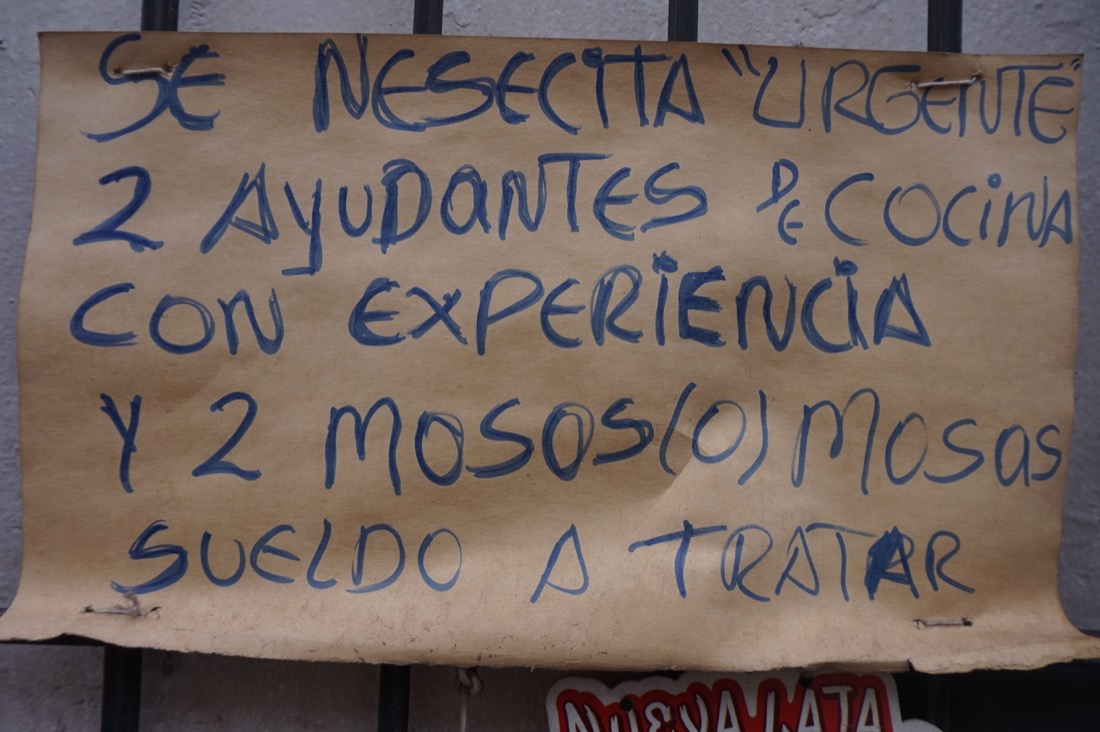 SE NESECITA "URGENTE"
2 AyUDANTES DE COCiNA
CON EXPERiENCiA
Y 2 MOSOS(O) MOSAS
SUELDO A TRATAR
NUEVA LATA